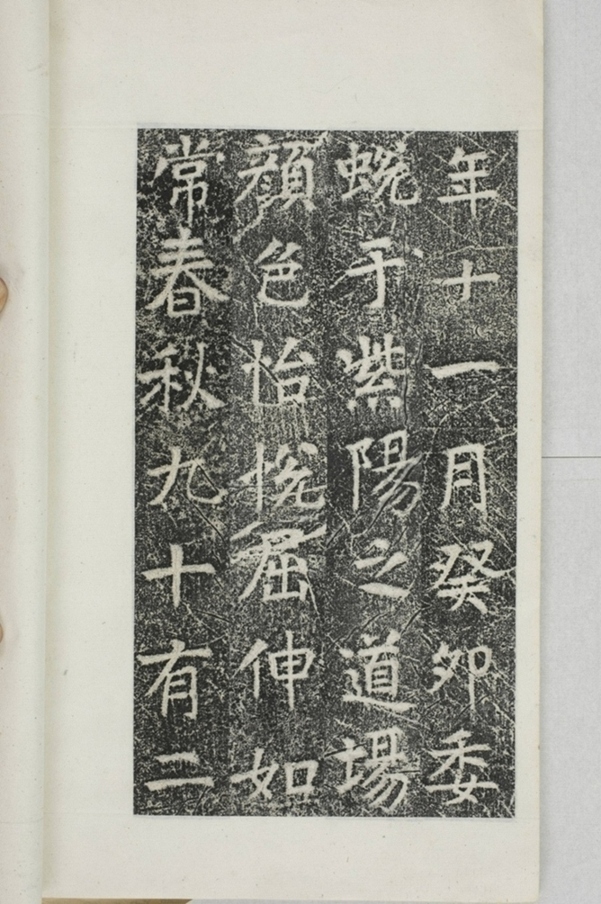 年十一月癸卯委
蜕于紫陽之道場
顔色怡悦屈伸如
常春秋九十有二